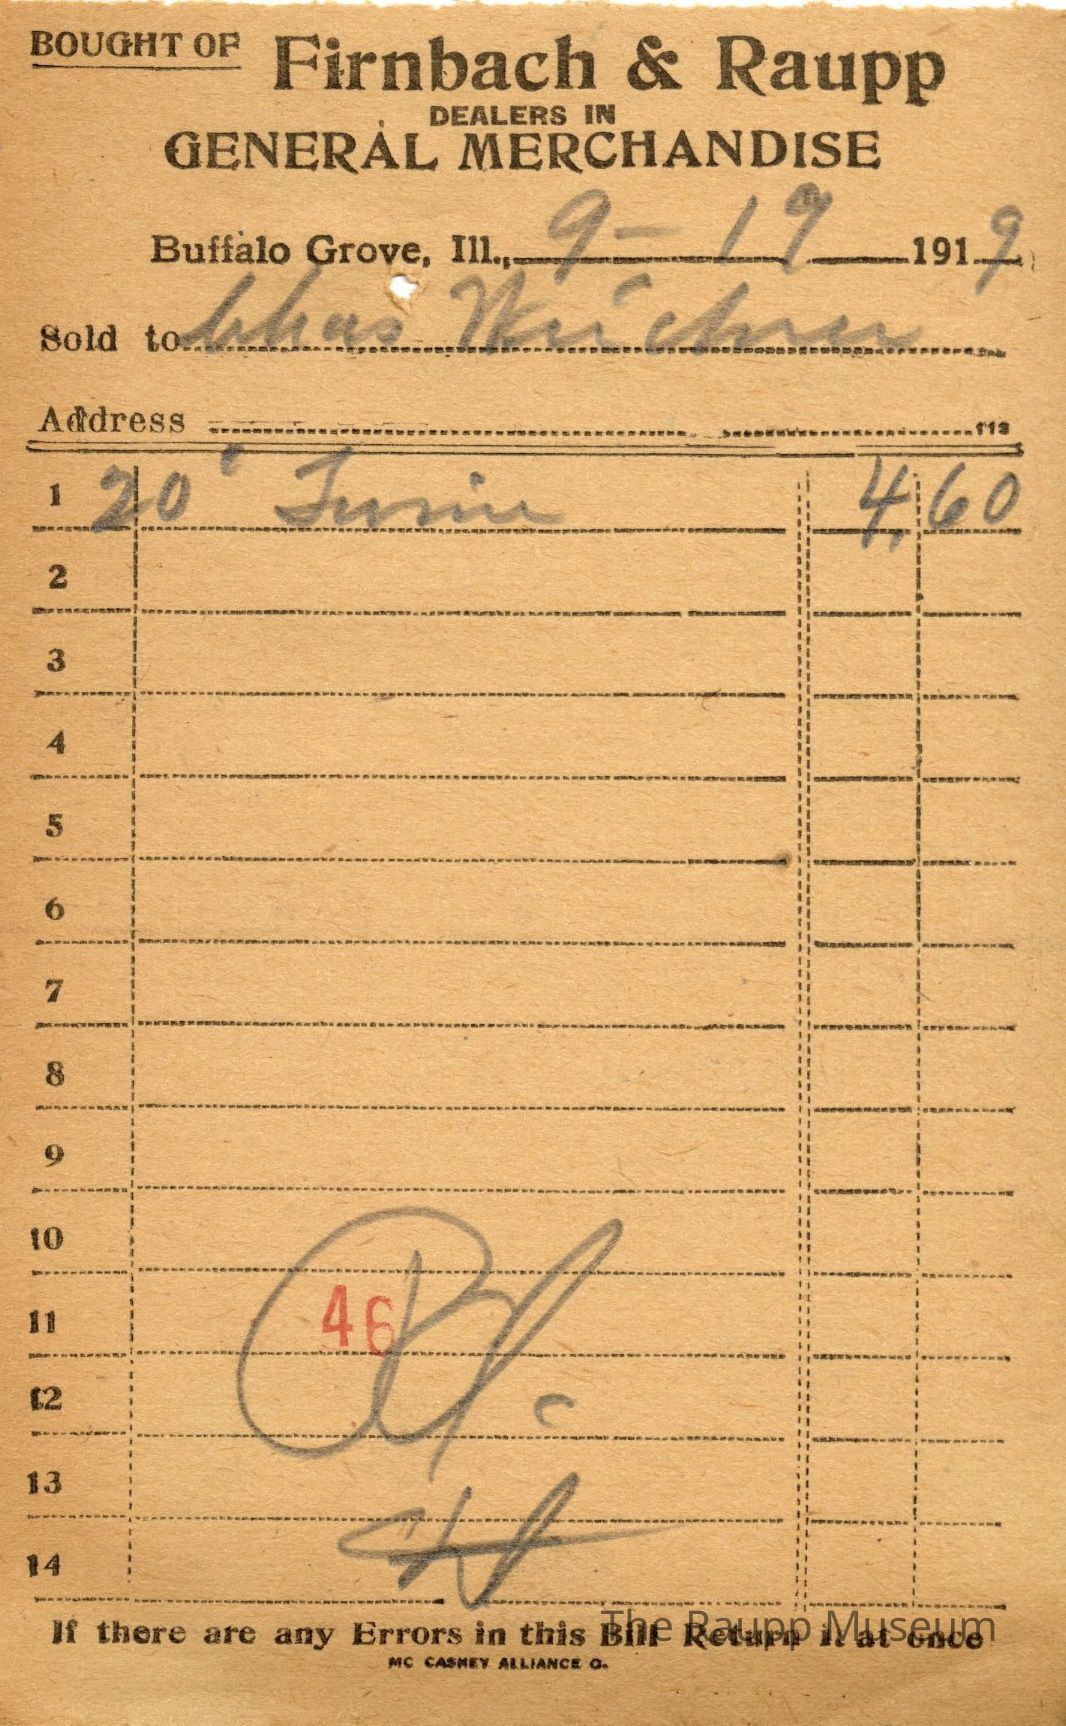 BOUGHT OF Firnbach & Raupp
DEALERS IN
GENERAL MERCHANDISE
Buffalo Grove, Ill., 9-19 1919
Sold to Chas Weichner
Address 113
1 20# Twine 4.60
2
3
4
5
6
7
8
9
10
11 46
12
13
14
If there are any Errors in this Bill Return it at once
MC CASKEY ALLIANCE O.
The Raupp Museum